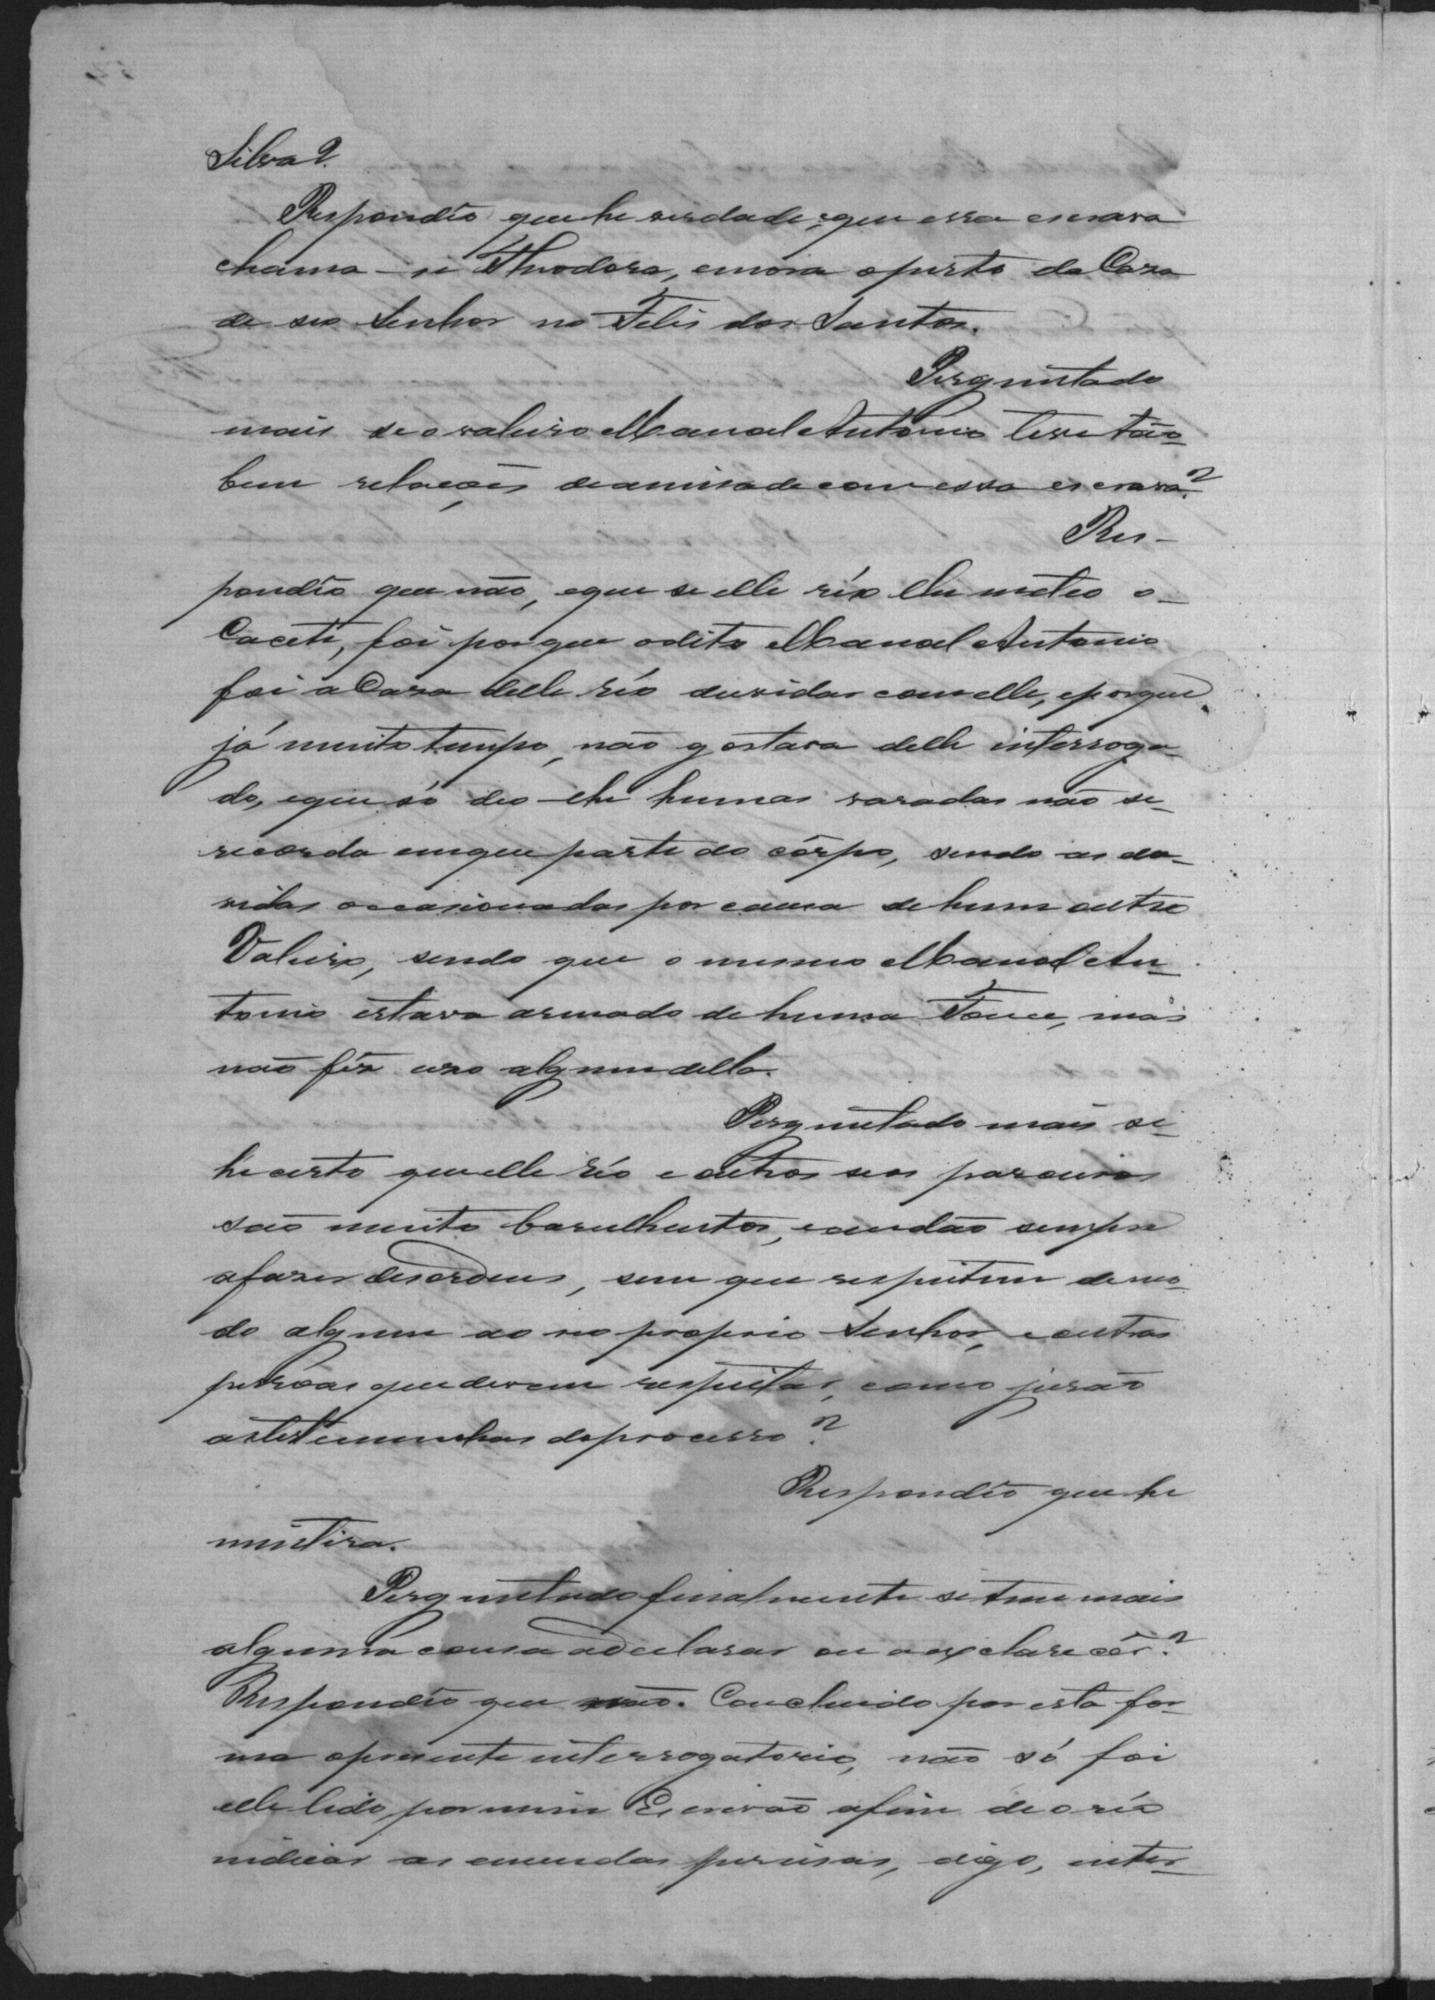 Silva?
Respondêo que he verdade, e que essa escrava
chama-se Theodora, e mora a perto da Caza
de seo Senhor no Felis dos Santos.
Perguntado
mais se o valeiro Manoel Antonio teve tão-
bem relações de amizade com essa escrava?
Res-
pondêo que não, e que se elle réo lhe meteo o
Cacete, foi por que o dito Manoel Antonio
foi a Caza delle réo duvidar com elle, e porque
já muito tempo, não gostava delle interroga-
do, e que só deo-lhe humas varadas não se
recorda em que parte do côrpo, sendo as du-
vidas occasionadas por causa de hum outro
Valeiro, sendo que o mesmo Manoel An-
tonio estava armado de huma Fouce, mas
não fêz uso algum della.
Perguntado mais se
he certo que elle réo e outros seos parceiros
são muito barulhentos, e andão sempre
a fazer desordens, sem que respeitem de mo-
do algum ao seo proprio Senhor, e outras
pessôas que devem respeitar, como jurão
as testemunhas do processo?
Respondêo que he
mentira.
Perguntado finalmente se tem mais
alguma cousa a declarar ou a esclarecêr?
Respondêo que não. Concluido por esta for-
ma o presente interrogatorio, não só foi
elle lido por mim Escrivão afim de o réo
indicar as emendas precisas, digo, inter-